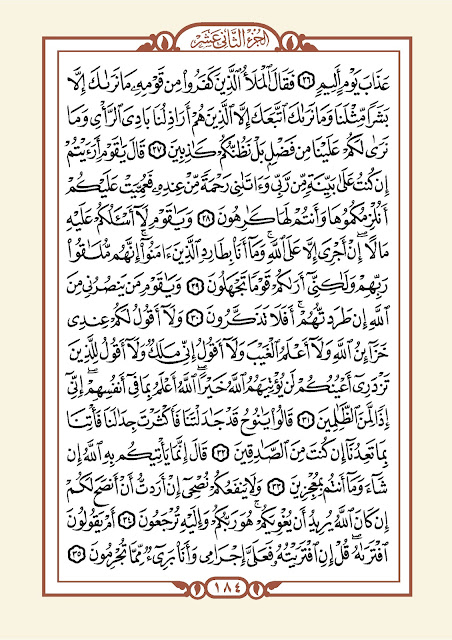 الجُزْءُ الثَّانِي عَشَرَ
عَذَابَ يَوْمٍ أَلِيمٍ ٢٦ فَقَالَ ٱلْمَلَأُ ٱلَّذِينَ كَفَرُوا۟ مِن قَوْمِهِۦ مَا نَرَىٰكَ إِلَّا
بَشَرًا مِّثْلَنَا وَمَا نَرَىٰكَ ٱتَّبَعَكَ إِلَّا ٱلَّذِينَ هُمْ أَرَاذِلُنَا بَادِىَ ٱلرَّأْىِ وَمَا
نَرَىٰ لَكُمْ عَلَيْنَا مِن فَضْلٍۭ بَلْ نَظُنُّكُمْ كَـٰذِبِينَ ٢٧ قَالَ يَـٰقَوْمِ أَرَءَيْتُمْ
إِن كُنتُ عَلَىٰ بَيِّنَةٍ مِّن رَّبِّى وَءَاتَىٰنِى رَحْمَةً مِّنْ عِندِهِۦ فَعُمِّيَتْ عَلَيْكُمْ
أَنُلْزِمُكُمُوهَا وَأَنتُمْ لَهَا كَـٰرِهُونَ ٢٨ وَيَـٰقَوْمِ لَآ أَسْـَٔلُكُمْ عَلَيْهِ
مَالًا ۖ إِنْ أَجْرِىَ إِلَّا عَلَى ٱللَّهِ ۚ وَمَآ أَنَا۠ بِطَارِدِ ٱلَّذِينَ ءَامَنُوٓا۟ ۚ إِنَّهُم مُّلَـٰقُوا۟
رَبِّهِمْ وَلَـٰكِنِّىٓ أَرَىٰكُمْ قَوْمًا تَجْهَلُونَ ٢٩ وَيَـٰقَوْمِ مَن يَنصُرُنِى مِنَ
ٱللَّهِ إِن طَرَدتُّهُمْ ۚ أَفَلَا تَذَكَّرُونَ ٣٠ وَلَآ أَقُولُ لَكُمْ عِندِى
خَزَآئِنُ ٱللَّهِ وَلَآ أَعْلَمُ ٱلْغَيْبَ وَلَآ أَقُولُ إِنِّى مَلَكٌ وَلَآ أَقُولُ لِلَّذِينَ
تَزْدَرِىٓ أَعْيُنُكُمْ لَن يُؤْتِيَهُمُ ٱللَّهُ خَيْرًا ۖ ٱللَّهُ أَعْلَمُ بِمَا فِىٓ أَنفُسِهِمْ ۖ إِنِّىٓ
إِذًا لَّمِنَ ٱلظَّـٰلِمِينَ ٣١ قَالُوا۟ يَـٰنُوحُ قَدْ جَـٰدَلْتَنَا فَأَكْثَرْتَ جِدَٰلَنَا فَأْتِنَا
بِمَا تَعِدُنَآ إِن كُنتَ مِنَ ٱلصَّـٰدِقِينَ ٣٢ قَالَ إِنَّمَا يَأْتِيكُم بِهِ ٱللَّهُ إِن
شَآءَ وَمَآ أَنتُم بِمُعْجِزِينَ ٣٣ وَلَا يَنفَعُكُمْ نُصْحِىٓ إِنْ أَرَدتُّ أَنْ أَنصَحَ لَكُمْ
إِن كَانَ ٱللَّهُ يُرِيدُ أَن يُغْوِيَكُمْ ۚ هُوَ رَبُّكُمْ وَإِلَيْهِ تُرْجَعُونَ ٣٤ أَمْ يَقُولُونَ
ٱفْتَرَىٰهُ ۖ قُلْ إِنِ ٱفْتَرَيْتُهُۥ فَعَلَىَّ إِجْرَامِى وَأَنَا۠ بَرِىٓءٌ مِّمَّا تُجْرِمُونَ ٣٥
١٨٤